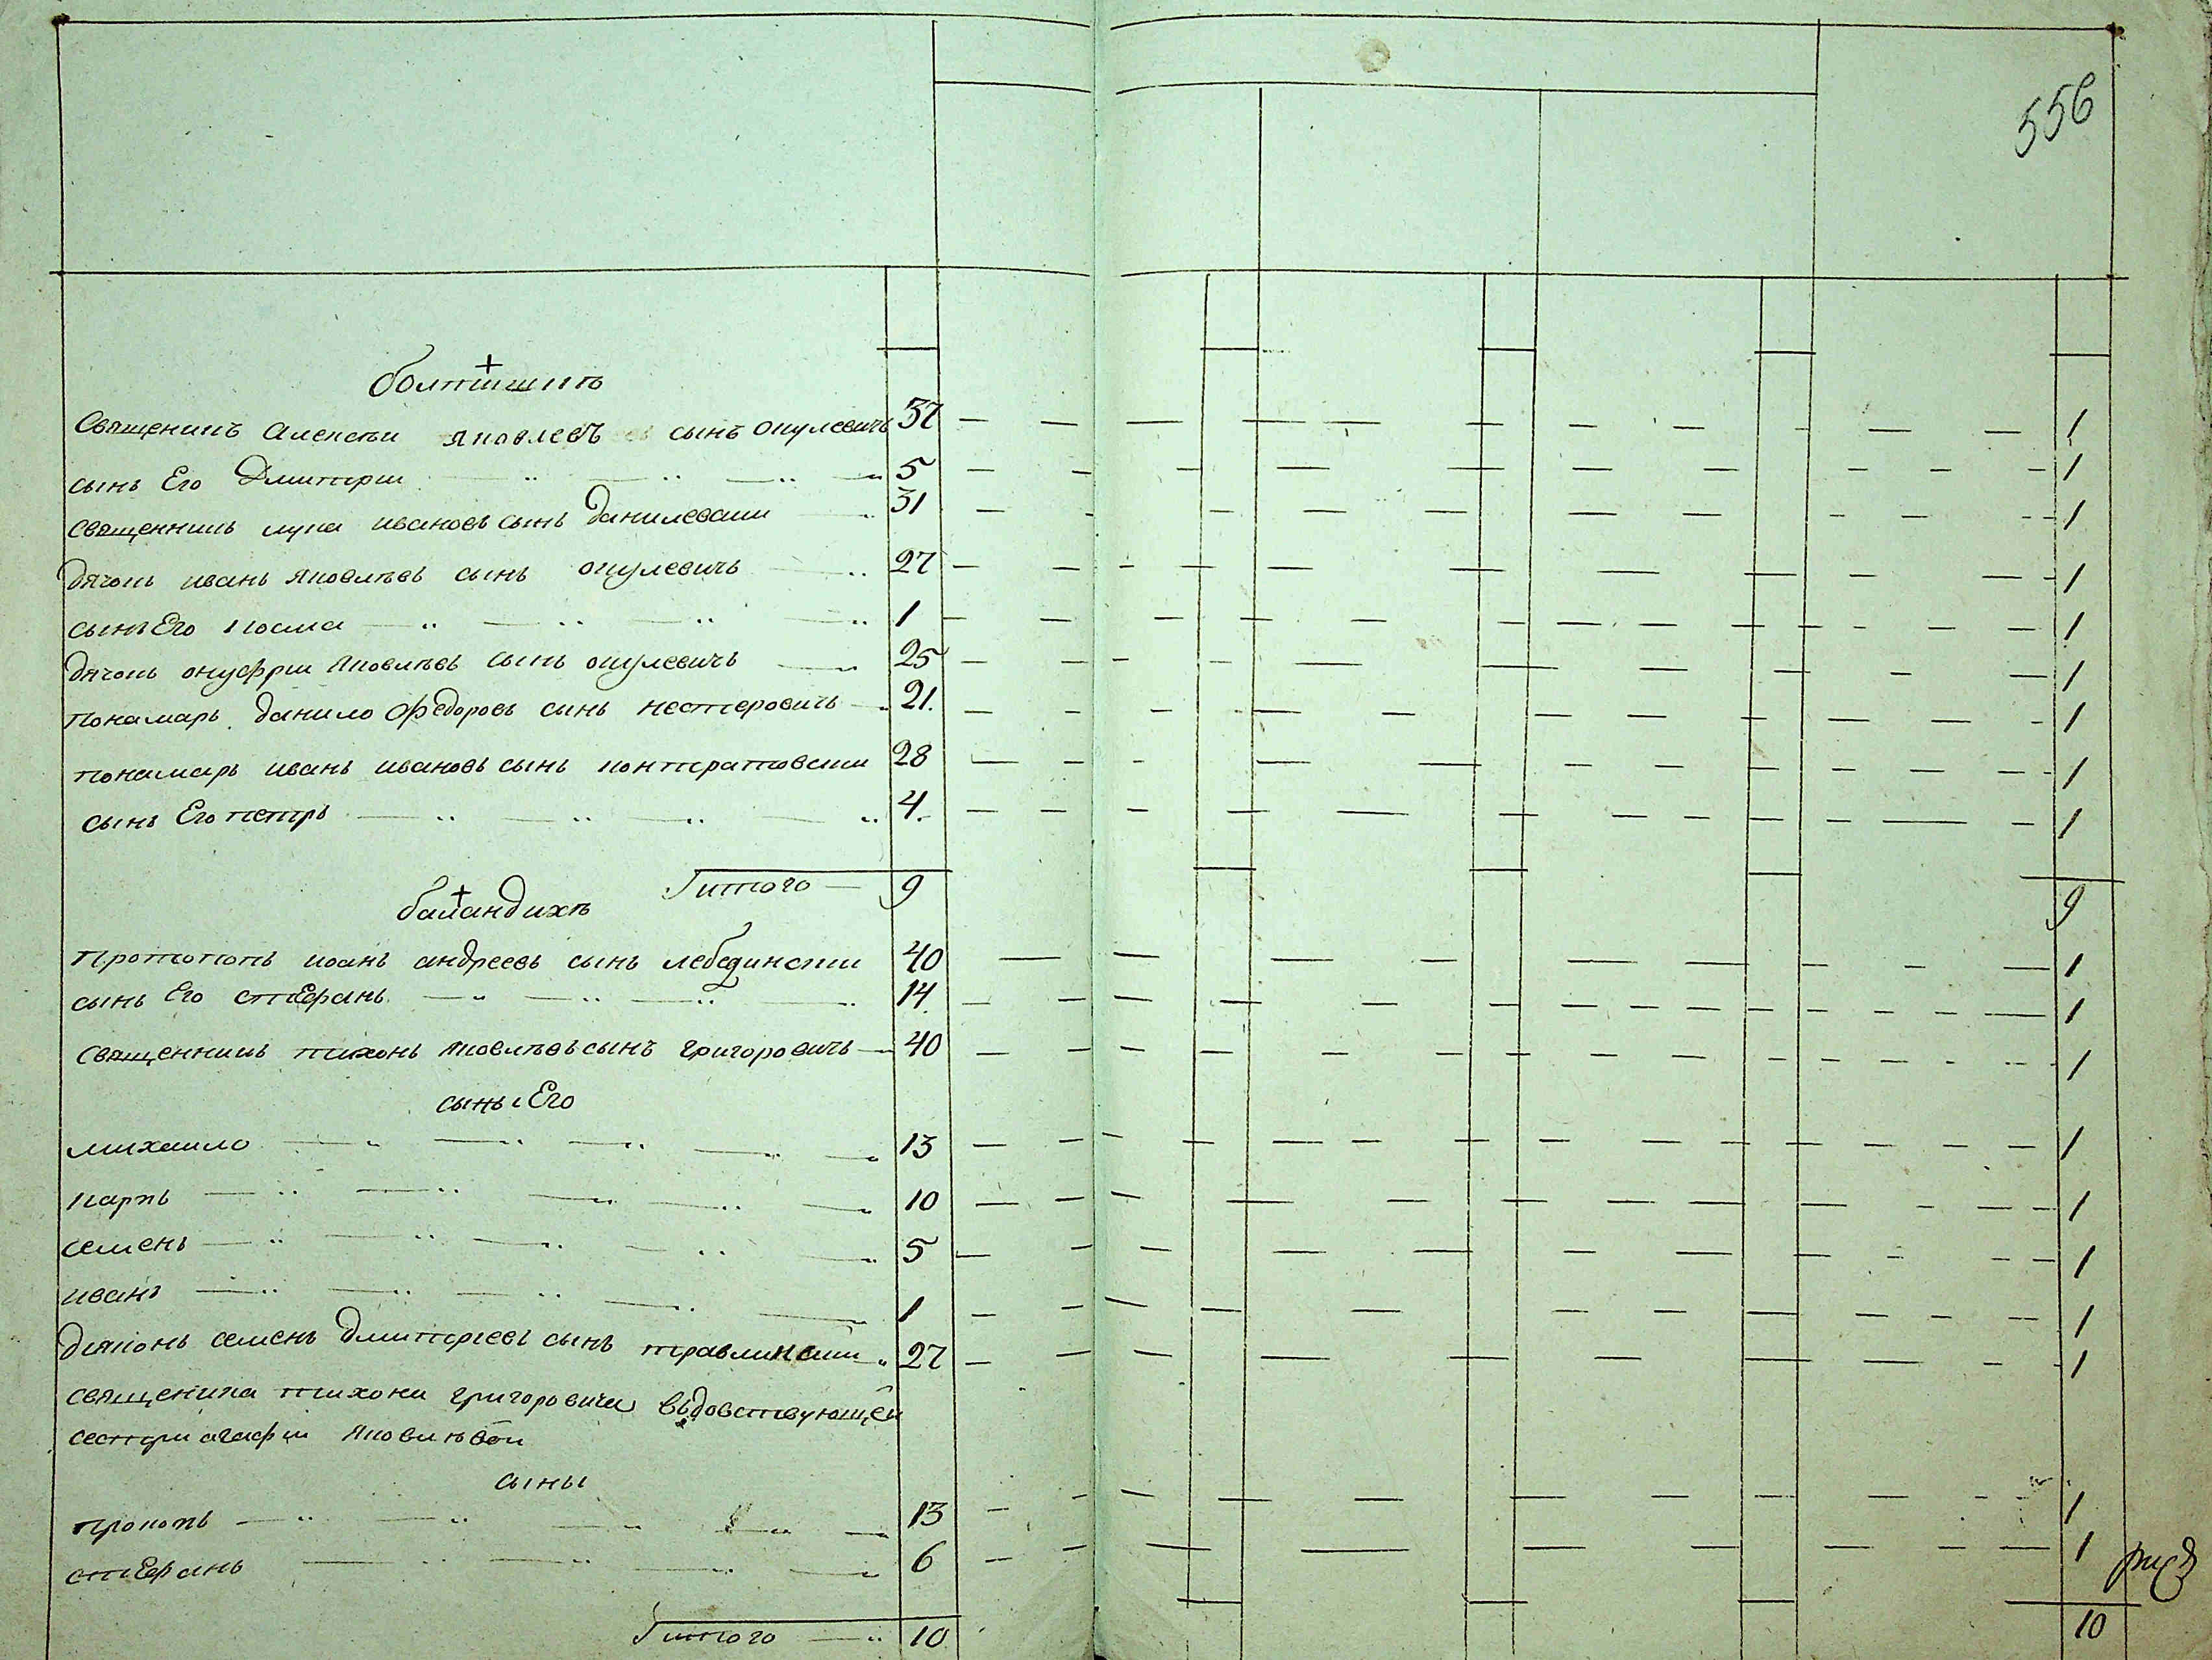 556
болтишшъ
Священикъ Алексѣи яковлевъ сынъ окулевичъ 37 1
сынъ Его Дмитрии 5 1
священникъ лука ивановъ сынъ данилевски 31 1
дячокъ иванъ яковлѣвъ сынъ окулевичъ 27 1
сынъ Его косма 1 1
дячокъ онуфрии яковлѣвъ сынъ окулевичъ 25 1
понамарь данило федоровъ сынъ нестеровичъ 21 1
понамарь иванъ ивановъ сынъ контратовски 28 1
сынъ Его петръ 4 1
итого 9 9
баландихъ
протопопъ иоанъ андреевъ сынъ лебедински 40 1
сынъ Его стефанъ 14 1
священникъ тихонъ яковлѣвъ сынъ григоровичъ 40 1
сыны Его
михаило 13 1
карпъ 10 1
семенъ 5 1
иванъ 1 1
дияконъ семенъ дмитриевъ сынъ травлински 27 1
священика тихона григоровича вьдовствующеи
сестри агафии яковлѣвои
сыны
прокопъ 13 1
стефанъ 6 1
итого 10 10